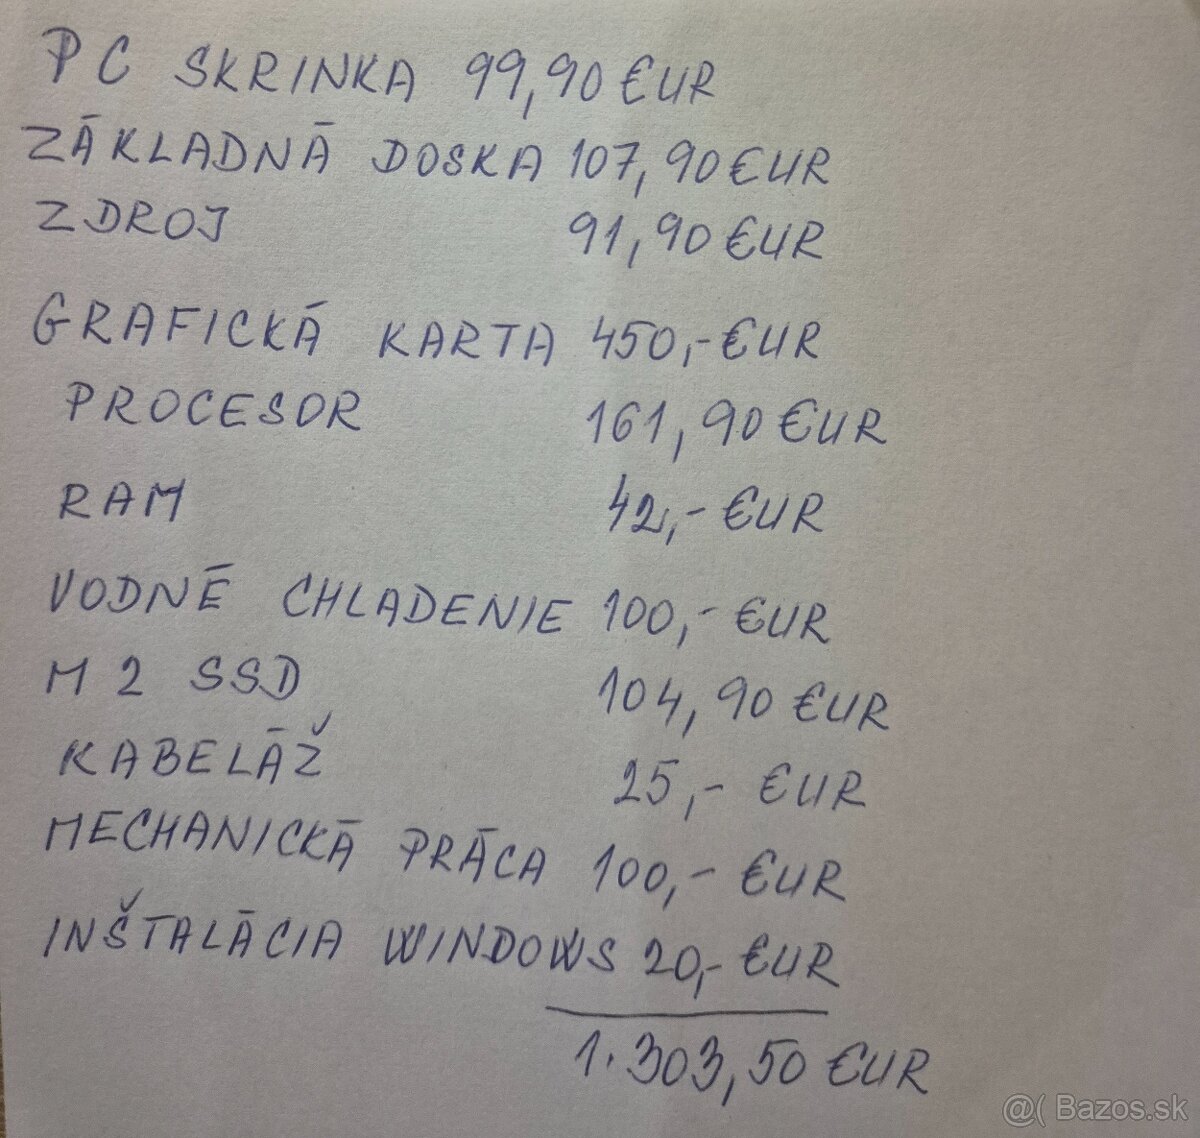 PC SKRINKA 99,90 €UR
ZÁKLADNÁ DOSKA 107,90 €UR
ZDROJ 91,90 €UR
GRAFICKÁ KARTA 450,- €UR
PROCESOR 161,90 €UR
RAM 42,- €UR
VODNÉ CHLADENIE 100,- €UR
M2 SSD 104,90 €UR
KABELÁŽ 25,- €UR
MECHANICKÁ PRÁCA 100,- €UR
INŠTALÁCIA WINDOWS 20,- €UR
1.303,50 €UR
@( Bazos.sk